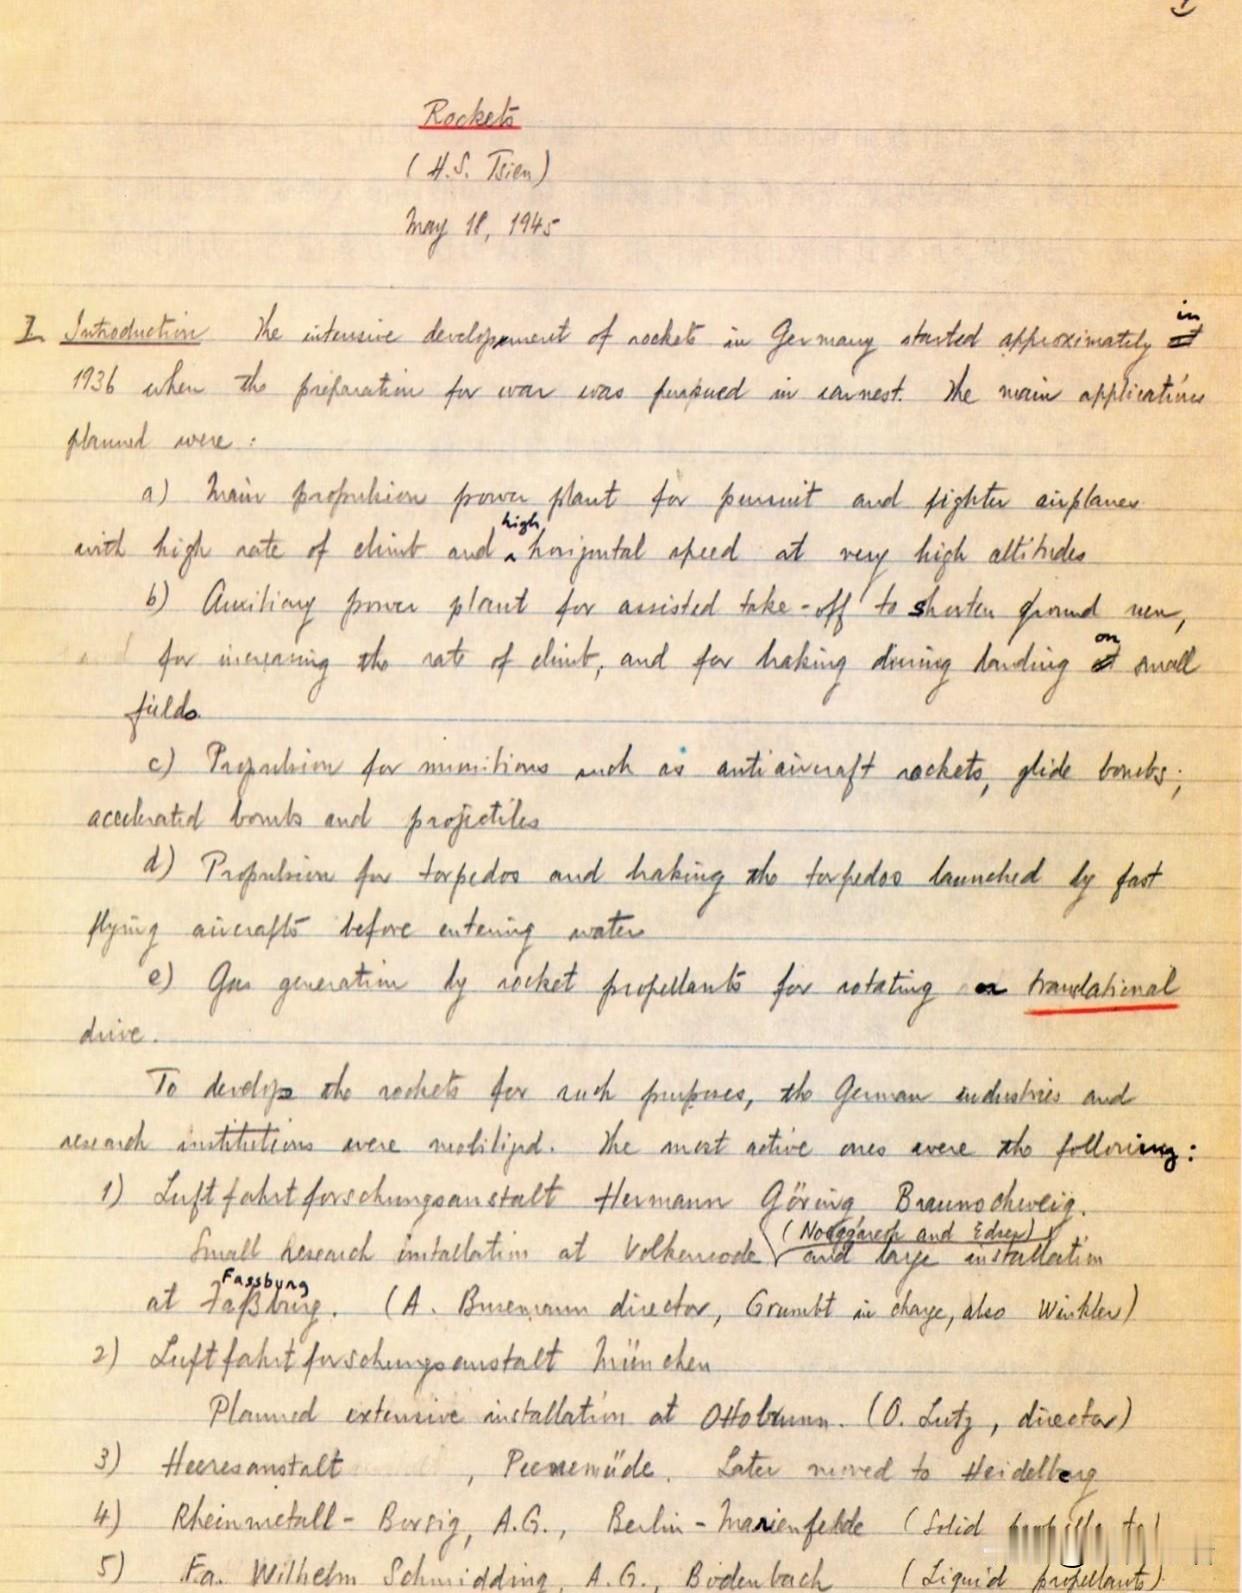 Rockets
(H.S. Tsien)
May 18, 1945
I. Introduction The intensive development of rockets in Germany started approximately in
1936 when the preparation for war was pursued in earnest. The main applications
planned were :
a) Main propulsion power plant for pursuit and fighter airplanes
with high rate of climb and high horizontal speed at very high altitudes
b) Auxiliary power plant for assisted take-off to shorten ground run,
for increasing the rate of climb, and for braking during landing on small
fields.
c) Propulsion for munitions such as antiaircraft rockets, glide bombs,
accelerated bombs and projectiles
d) Propulsion for torpedos and braking the torpedos launched by fast
flying aircrafts before entering water
e) Gas generation by rocket propellants for rotating or translational
drive.
To develop the rockets for such purposes, the German industries and
research institutions were mobilized. The most active ones were the following:
1) Luftfahrtforschungsanstalt Hermann Göring Braunschweig.
Small research installation at Volkenrode (and large installation
at Faßburg. Fassburg (A. Busemann director, Grumbt in charge, also Winkler)
2) Luftfahrtforschungsanstalt München
Planned extensive installation at Ottobrunn. (O. Lutz, director)
3) Heeresanstalt , Peenemüde. Later moved to Heidelberg
4) Rheinmetall-Borsig, A.G., Berlin-Marienfelde (Solid
5) Fa. Wilhelm Schmidding, A.G., Bodenbach (Liquid propellants)